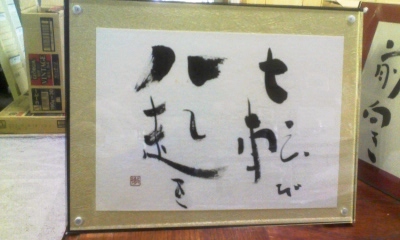 七転び
八起き
前向き